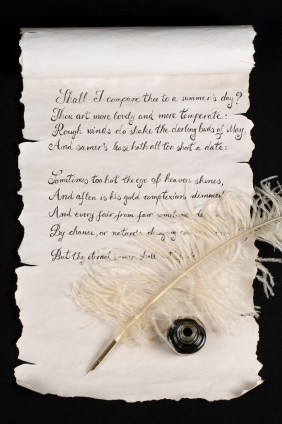 Shall I compare thee to a summer's day?
Thou art more lovely and more temperate:
Rough winds do shake the darling buds of May,
And summer's lease hath all too short a date:
Sometimes too hot the eye of heaven shines,
And often is his gold complexion dimmed
And every fair from fair sometime de
By chance, or nature's changing
But thy eternal summer shall